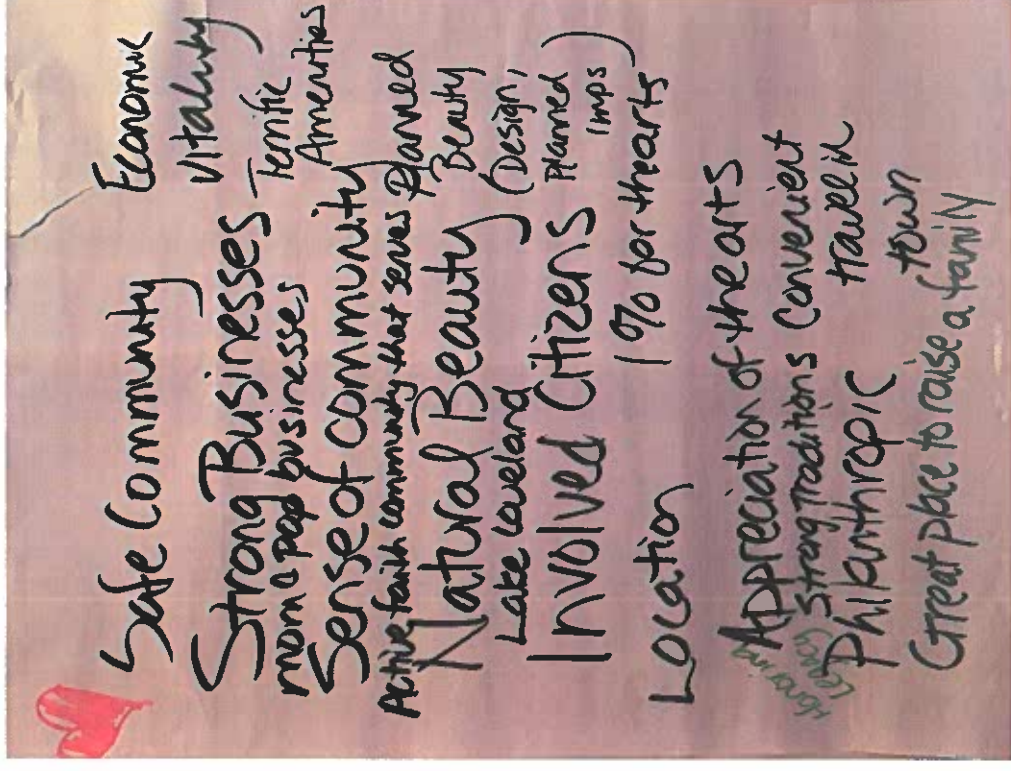 Safe Community
Economic
Vitality
Strong Businesses – Terrific
Amenities
mom & pop businesses
Sense of Community
Active faith community that serves
Planned
Beauty
(Design,
Planned
imps)
Natural Beauty
Lake Loveland
Involved Citizens
1% for the arts
Location
Appreciation of the arts
Honoring
Legacy
Strong Traditions
Convenient
travel in
town
Philanthropic
Great place to raise a family